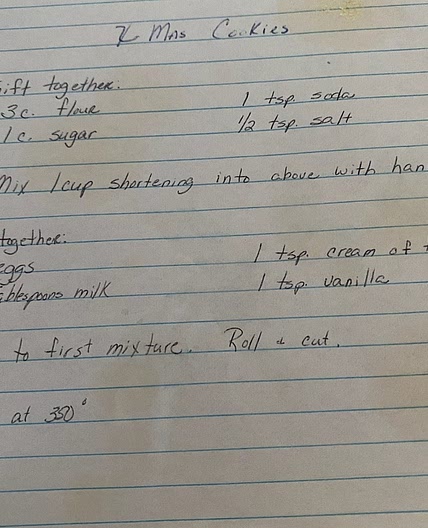 X Mas Cookies
ift together:
3 c. flour 1 tsp. soda
1 c. sugar 1/2 tsp. salt
Mix 1 cup shortening into above with han
together:
eggs 1 tsp. cream of t
ablespoons milk 1 tsp. vanilla
to first mixture. Roll & cut.
at 350°